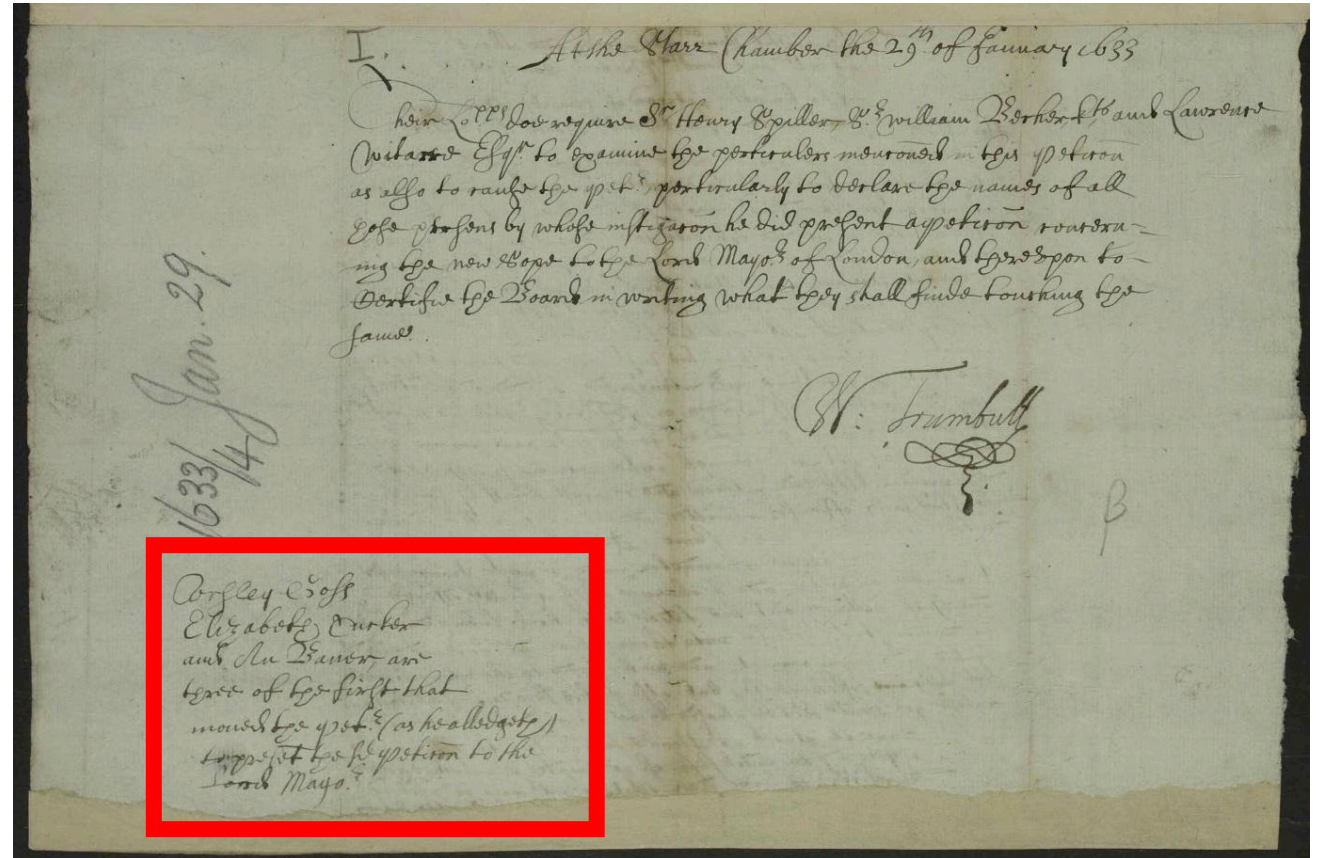 I.
At the Starr Chamber the 29th of January 1633
Their Lopps doe require Sr Henry Spiller, Sr William Becher kts and Lawrence
Whitacre Esqr to examine the perticulers menconed in this peticon
as also to cause the petr perticularly to declare the names of all
those persens by whose instigacon he did present a peticon concern-
ing the new Sope to the Lord Mayor of London, and thereupon to
Certifie the Board in writing what they shall finde touching the
same.
W: Trumbull
1633/4 Jan. 29.
Elizabeth
and An are
three of the first that
moved the petr (as he alledgeth)
to present the sd peticon to the
Lord Mayor